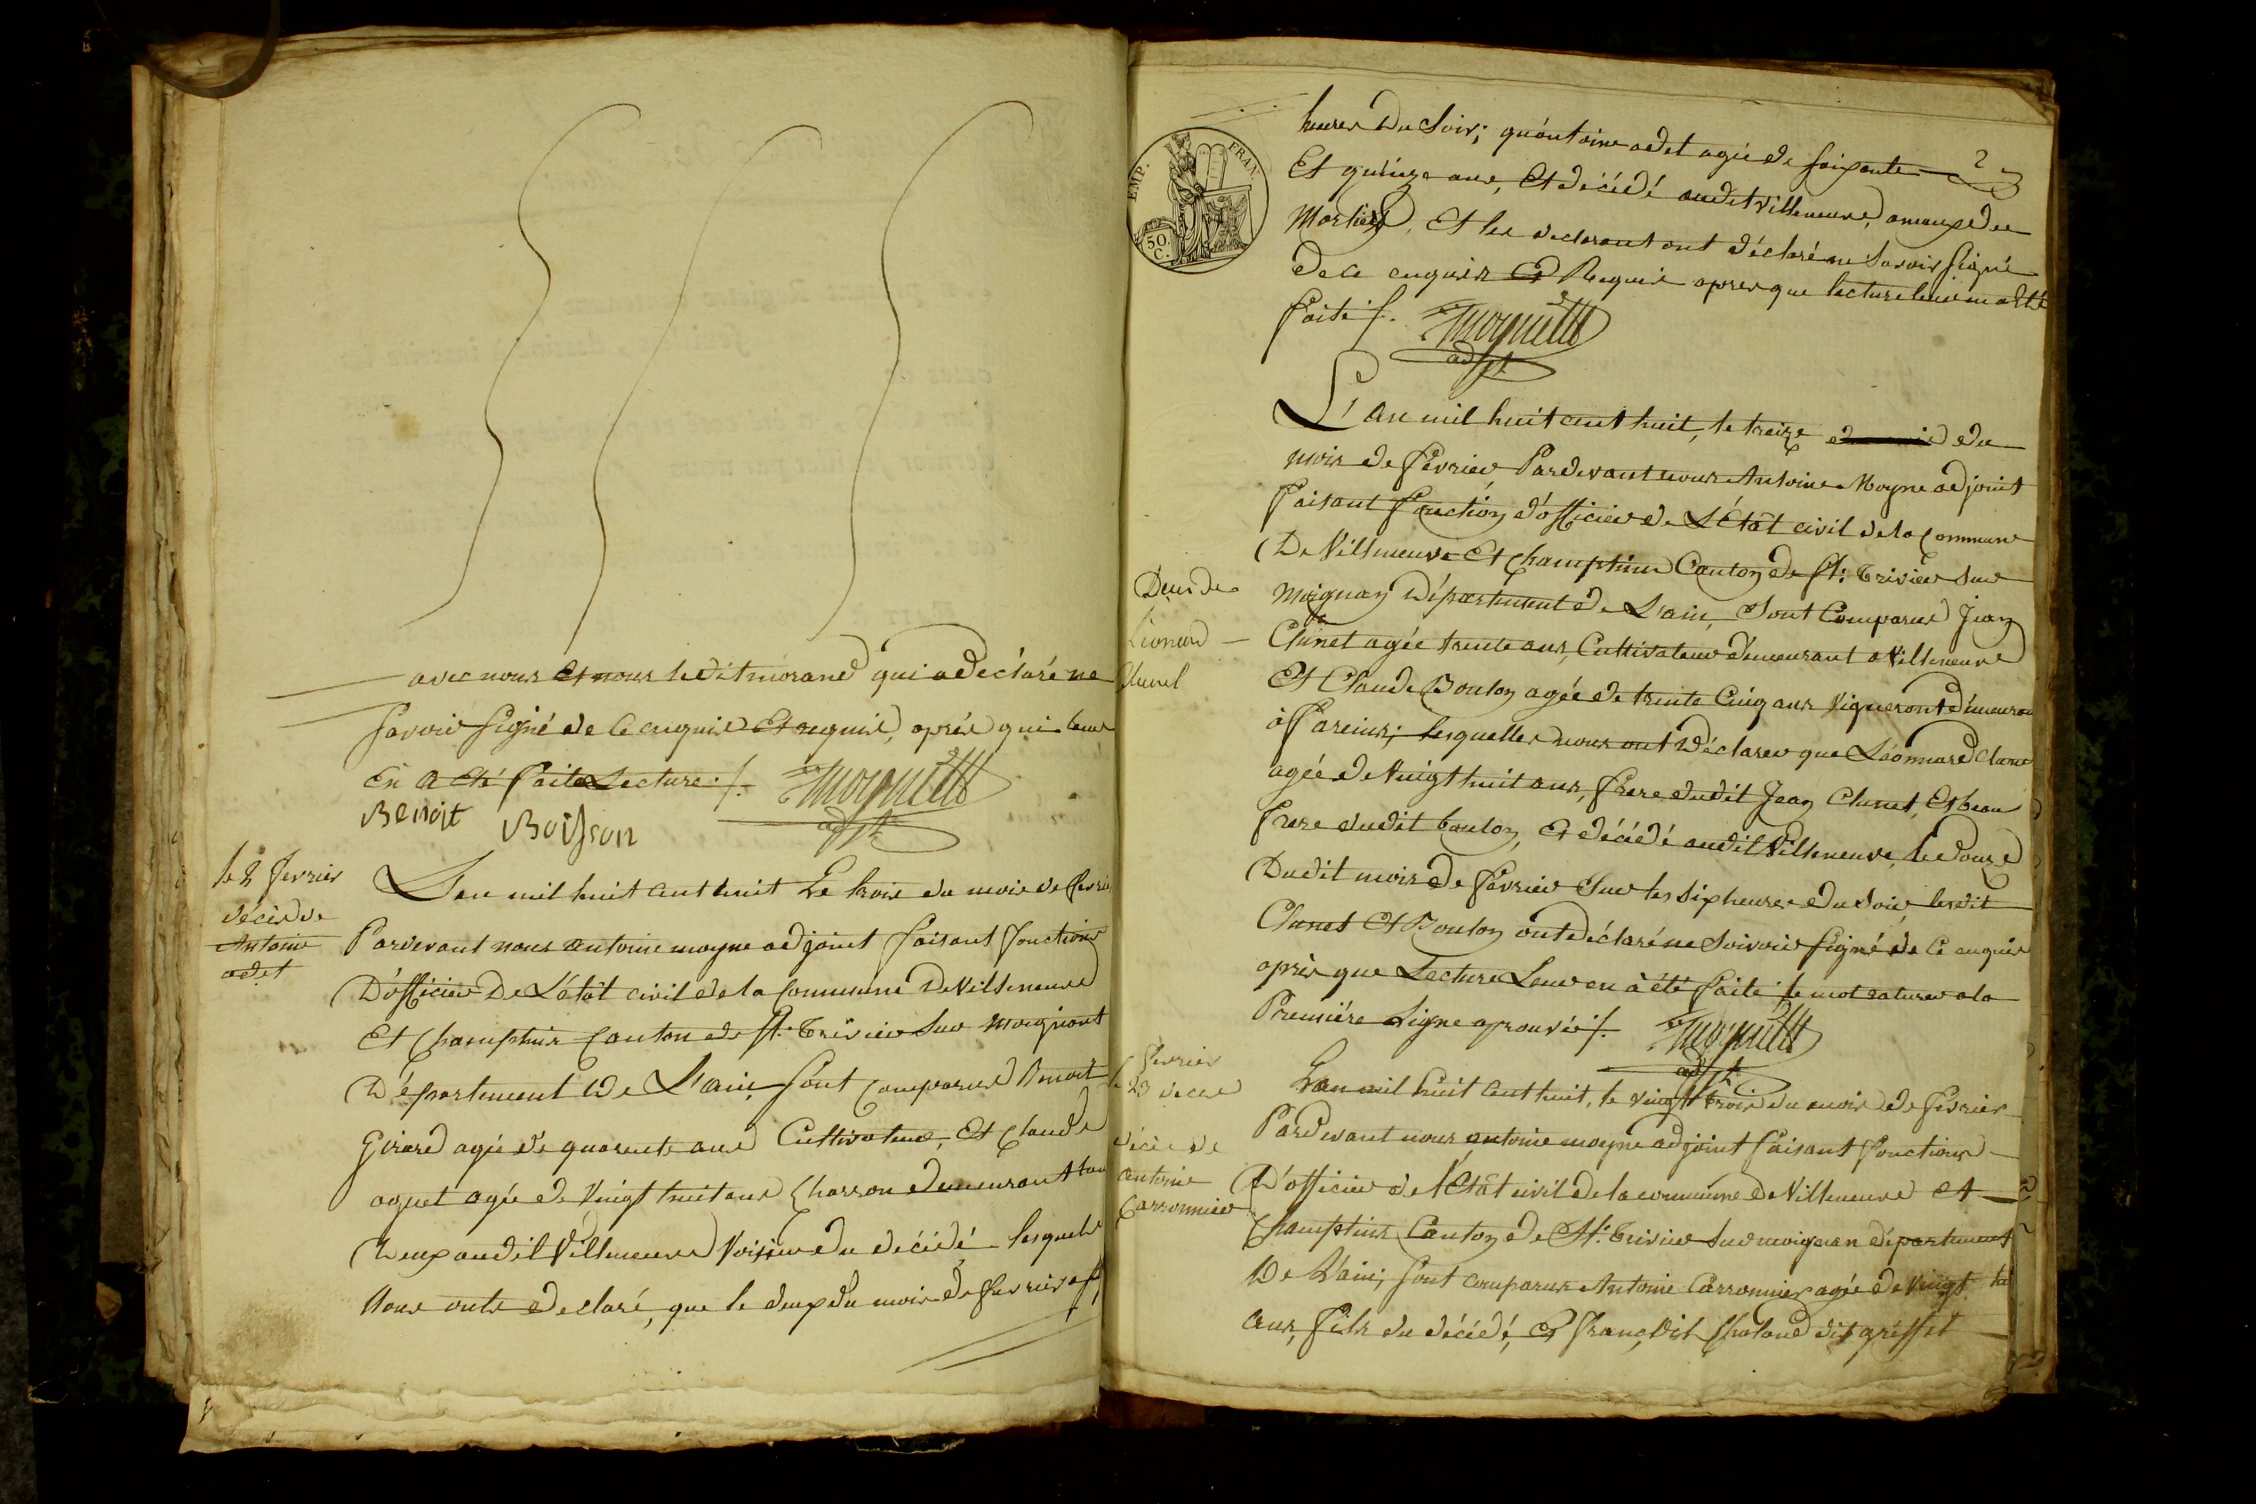 avec nous et nous ledit morand qui a déclaré ne
savoir signé de ce enquis et requis, après qui leur
en a été faite Lecture ./.
Benoit Boisson
adjt
le 2 fevrier
décès de
Antoine
adet
L'an mil huit cent huit Le trois du mois de fevrier
Pardevant nous antoine moyne adjoint faisant fonctions
D'officier De L'état civil de la Commune De Villeneuve
Et Champteins Canton de St. Trivier sur moignant
Département De L'ain, sont comparus Benoit
Girard agée de quarente ans Cultivateur, Et Claude
aguet agée de vingt huit ans Charron demeurant tous
deux audit Villeneuve Voisins du décédé lesquels
Nous onts declaré, que le deux du mois de fevrier
EMP. FRAN.
50. C.
2
heures du Soir; qu'antoine adet agée de soixante
Et quinze ans, Et décédé audit villeneuve, a maux des
Mortiers, Et les declarant ont déclaré ne savoir signé
de ce enquis Et Requis apres que lecture leur en a été
faite ./.
adjt
L'an mil huit cent huit, le treize du
mois de fevrier Pardevant nous Antoine Moyne adjoint
faisant fonction d'officier de L'État civil de la Commune
De Villeneuve Et Champteins Canton de St. Trivier sur
Moignan Département de L'ain, Sont Comparus Jean
Deus de
Léonard
Clunet
Clunet agée trente ans, Cultivateur demeurant a Villeneuve
Et Claude Boulon agée de trente Cinq ans Vigneront démeurant
à fareins; lesquelles nous ont Déclarer que Léonnard Clunet
agée de Vingt huit ans, frere dudit Jean Clunet, Et beau
frere dudit boulon, Et décédé audit Villeneuve, le Douze
Dudit mois de fevrier Sur les six heures du soir, lesdit
Clunet Et Boulon ont déclaré ne savoir signé de ce enquis
après que Lecture Leur en à été faite le mot raturer a la
Premiére Ligne aprouvée ./.
adjt
fevrier
le 23
décès de
antoine
Carronnier
L'an mil huit cent huit, le vingt trois du mois de fevrier
Pardevant nous antoine moyne adjoint faisant fonctions
D'officier de l'État civil de la commune de Villeneuve et
Champteins Canton de St. Trivier sur moignan département
De L'ain, sont comparus Antoine Carronnier agée de vingt
ans, fils du décédé, Et François Chaland dit griffet